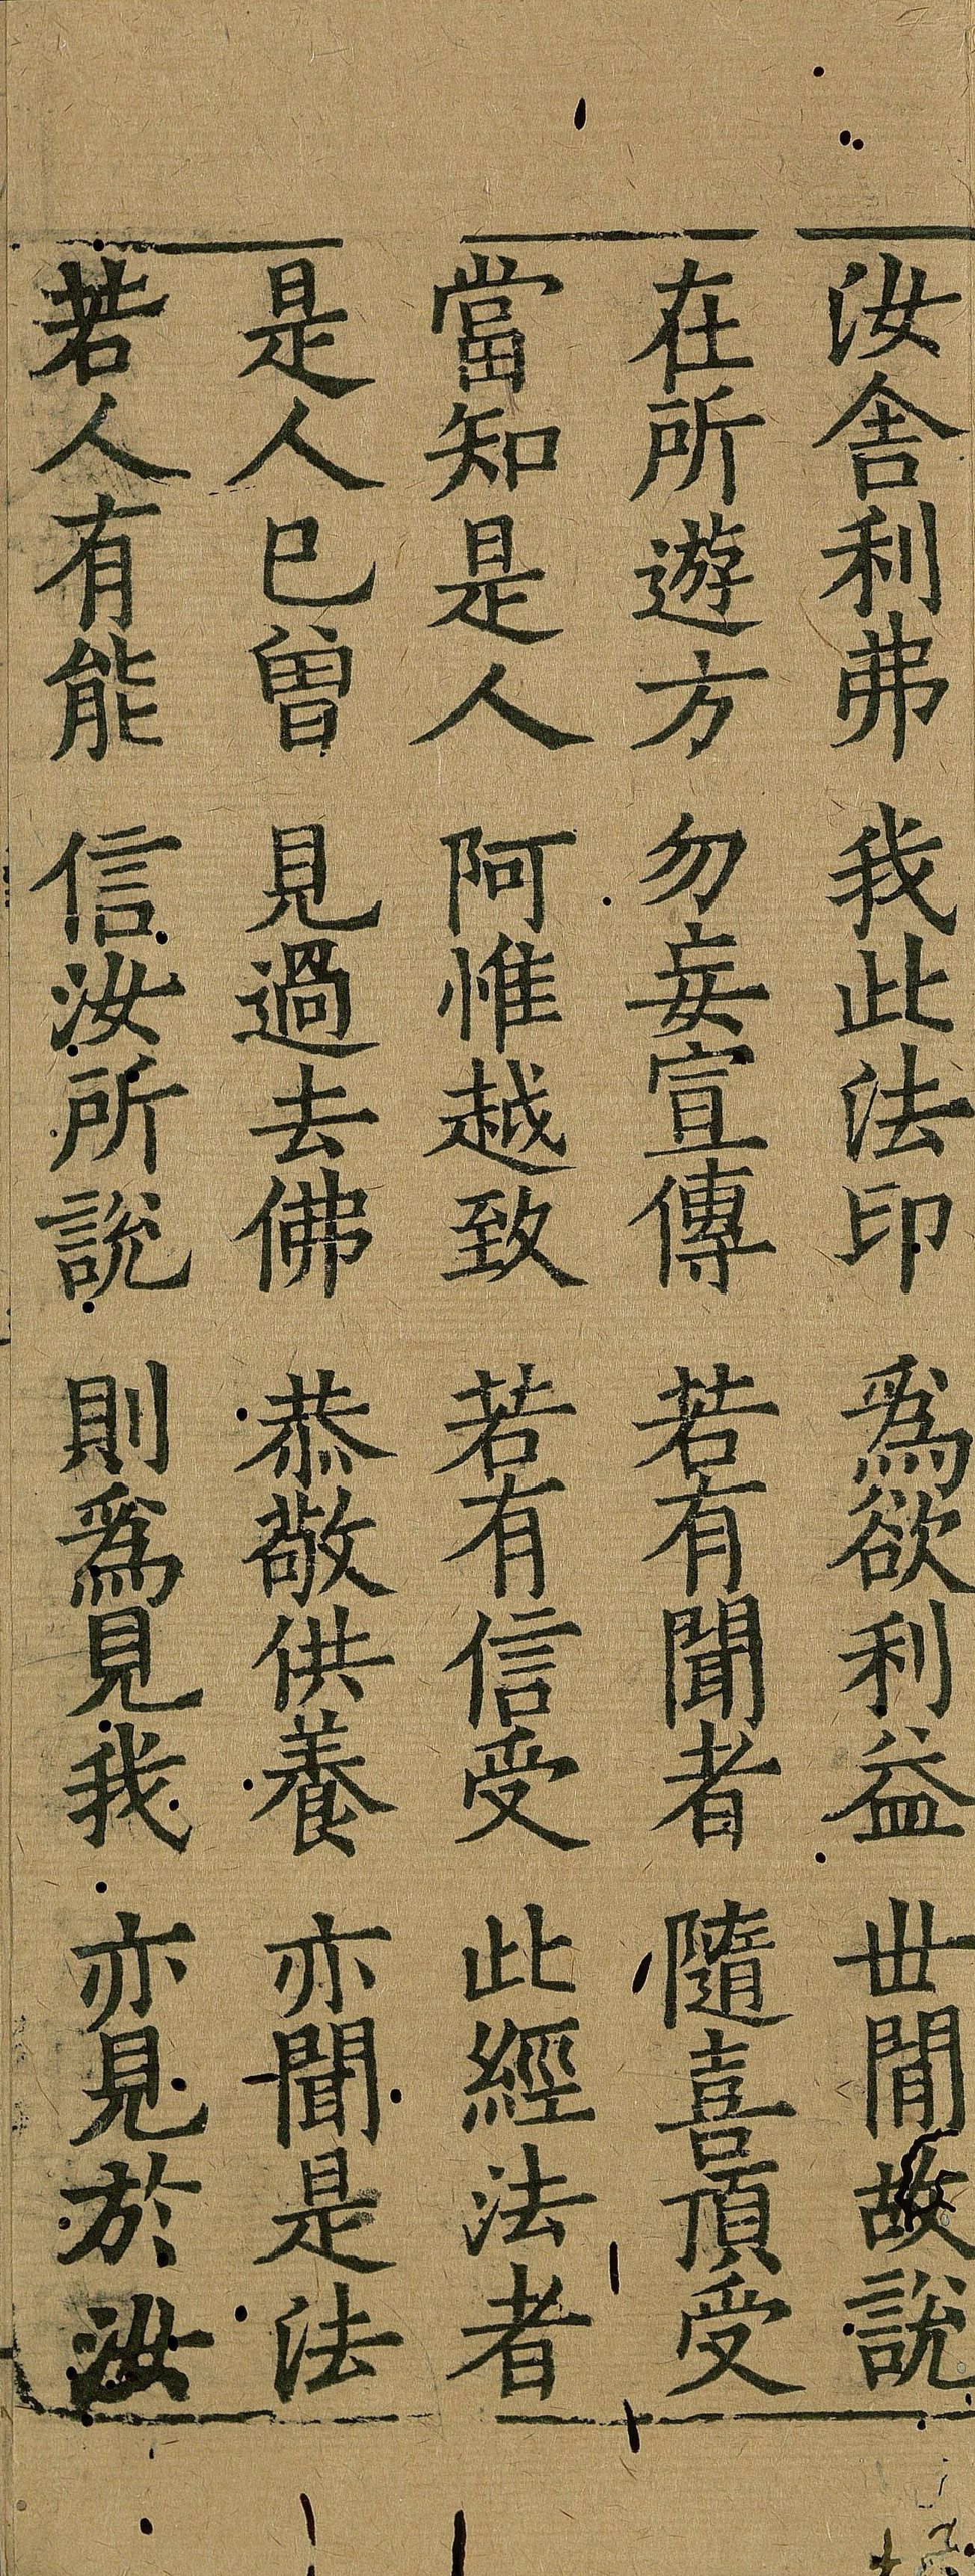 汝舍利弗　我此法印　爲欲利益　丗閒故說
在所遊方　勿妄宣傳　若有聞者　隨喜頂受
當知是人　阿惟越致　若有信受　此經法者
是人已曾　見過去佛　恭敬供養　亦聞是法
若人有能　信汝所說　則爲見我　亦見於汝